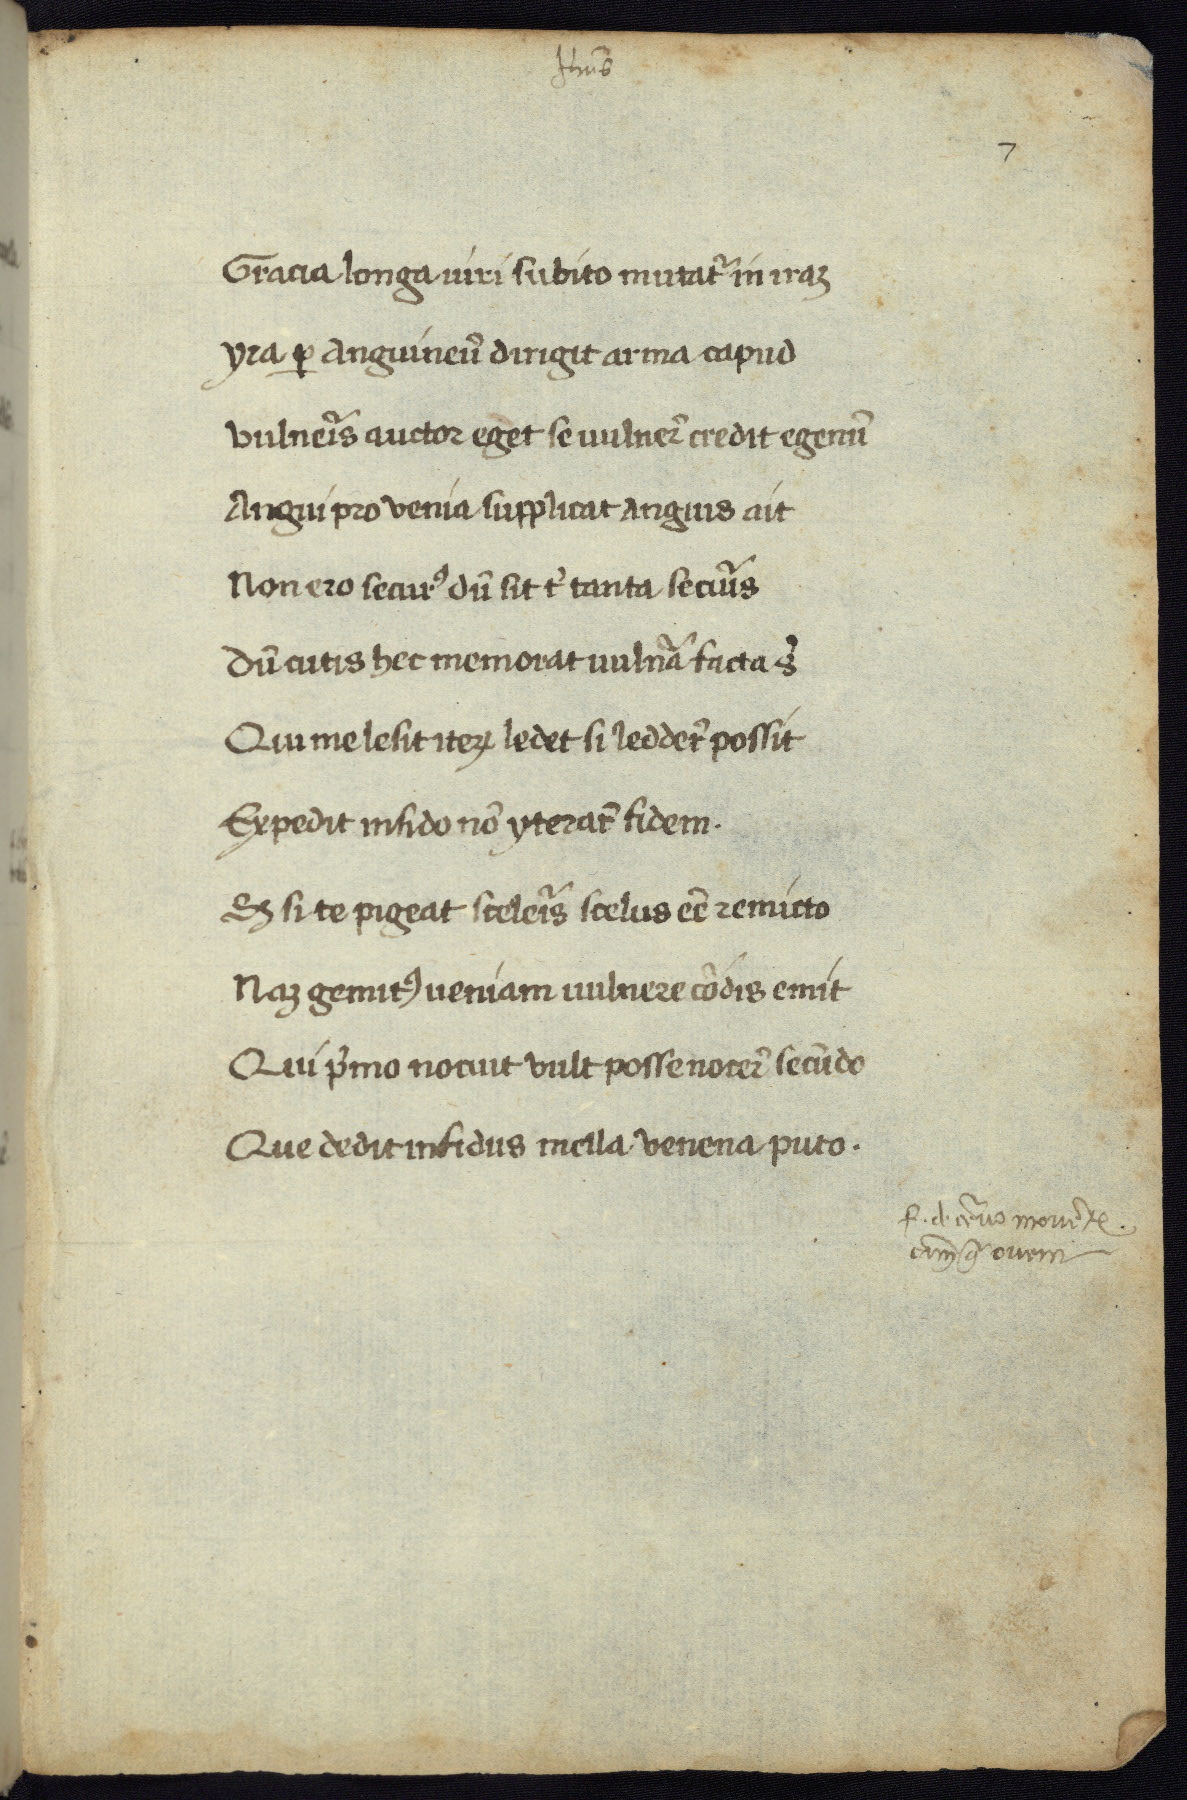 7
Gracia longa uiri subito mutat᷑ in iraꝫ
yra ꝑ anguineū dirigit arma capud
vulneris auctor eget se uulner̄ credit egenū
Angui pro venia supplicat anguis ait
Non ero secur⁹ dū sit t̄ tanta securis
dū cutis hec memorat uulnͣa facta s̄
Qui me lesit iteꝝ ledet si ledder̄ possit
Expedit infido nō yterar̄ fidem.
Sꝫ si te pigeat sceleris scelus eē remicto
Naꝫ gemit⁹ ueniam uulnere cōdis emit
Qui pͥmo nocuit vult posse nocer̄ secūdo
Que dedit infidus mella venena puto.
ouem